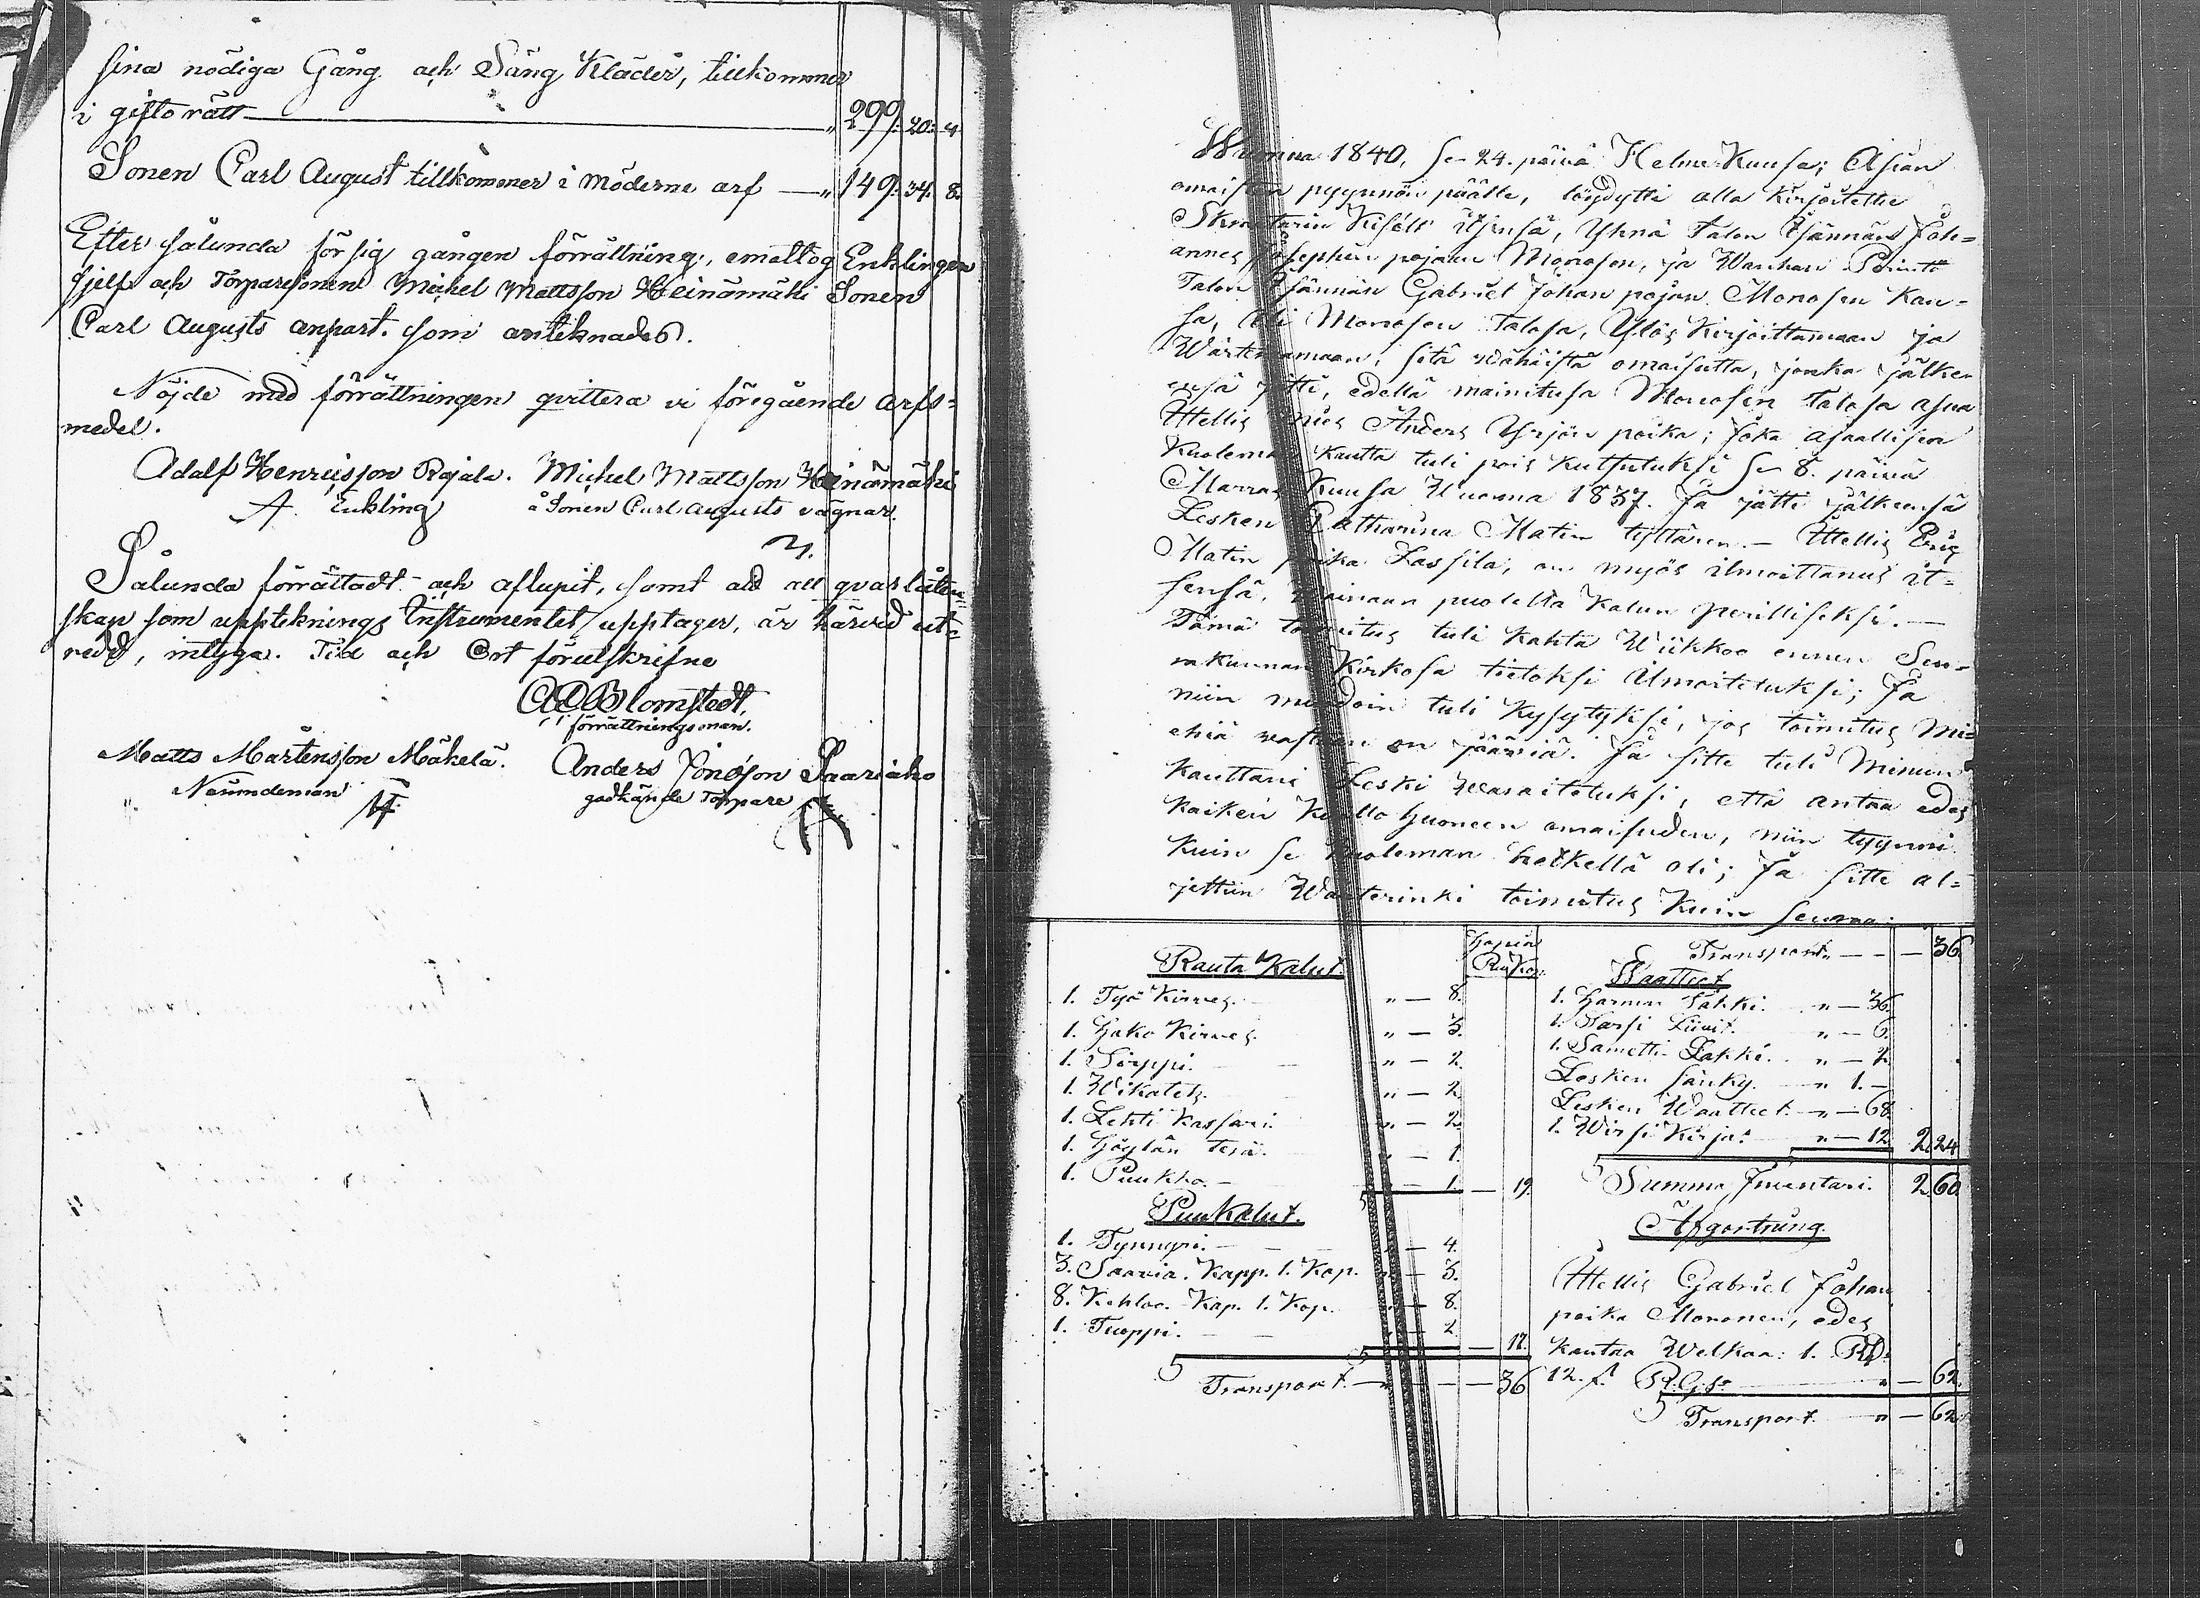 sina nödiga Gång och Säng Kläder, tillkommer
i giftorätt " 299. 20. 4.
Sonen Carl August tillkommer i Möderne arf " 149. 34. 8.
Efter sålunda försig gången förrättning, emottog Enklingen
sjelf och Torparesonen Michel Mattsson Heinömäki Sonen
Carl Augusts anpart. som anteknades.
Nöjde med förrättningen qvittera vi föregående arfs-
medel.
Adolf Henricsson Rajala. Michel Mattsson Heinömäki
Enkling å Sonen Carl Augusts vägnar.
Sålunda förrättadt och aflupit, samt att all qvarlåten-
skap som uppteknings Instrumentet upptager, är härvid ut-
redd, intyga. Tid och Ort förutskrifne
Blomstedt,
förrättningsman.
Matts Mårtensson Mäkelä. Anders Jonsson Saariaho
Nämndeman godkände Torpare
Wuonna 1840, Se 24. päivä Helme Kuusa; Asian
omaisten pyynnön päälle, löydytti alla kirjoitettu
itsensä, Ynnä Talon Isännän Joh-
annes Josephin pojan Monosen, ja Wanhan
Talon Isännän Gabriel Johan pojan Monosen Kan-
sa, Monosen Talosa, Ylös Kirjoittamaan ja
Wärteeramaan, sitä wähäistä omaisutta, jonka jälke-
ensä jätti, edellä mainitusa Monosen Talosa asuva
Ittellis mies Anders Yrjön poika; Joka ajaallisen
Kuoleman Kautta tuli pois Kutsutuksi Se 8. päivä
Marras Kuusa Wuonna 1837. Ja jätti jälkeensä
Lesken Catharina Matin tyttären. — Ittellis Eric
Matin poika Lassila, on myös ilmoittanut it-
sensä, Wainaan puolelta Kalun perilliseksi. —
Tämä toimitus tuli Kahta Wiikkoo ennen Seu-
rakunnan Kirkosa tietoksi ilmoitetuksi; Ja
niin muodoin tuli Kysytyksi, jos toimitus Mi-
ehiä wastaan on jääwiä. Ja sitte tuli Minun
Kauttani Leski waroitetuksi, että antaa edes
Kaiken Kuollo huoneen omaisuden, niin tyynni
Kuin se Kuoleman hetkellä oli; Ja sitte al-
jettiin Wärterinki toimitus Kuin seuraa:
Hopia
Rauta Kalut. Ru. Kop.
1. Työ Kirves. " — 8.
1. Hako Kirves. " — 3.
1. Sirppi. " — 2.
1. Wikateh. " — 2.
1. Lehti Kassari. " — 2.
1. Höylän terä. " — 1.
1. Puukko. — 1. — 19.
Puukalut.
1. Tynnyri. — 4.
3. Saavia. Kapp. 1. Kop. " — 3.
8. Kehloo. Kap. 1. Kop. " — 8.
1. Tuoppi. " — 2. — 17.
Transport. " — 36
Transport. " — — 36.
Waatteet
1. Harmaa Takki. " — 36.
1. Sarsi Liivit. " — 6.
1. Sametti Lakki. " — 2.
Lesken Sänky. " 1. —
Lesken Waatteet. " — 68.
1. Wirsi Kirja. " — 12. 2. 24
Summa Inventari. 2. 60.
Afgortning.
Ittellis Gabriel Johan
poika Mononen, edes
kantaa Welkaa: 1. Rd.
12. s. R.G.s. " — 62.
Transport. " — 62.